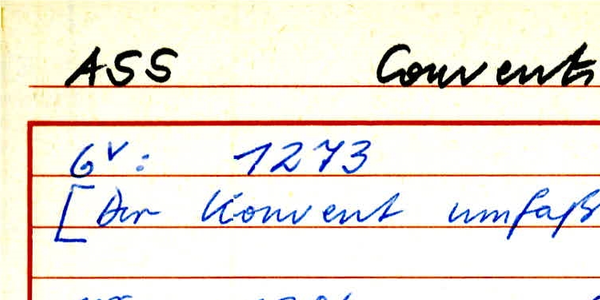 ASS Convents
GV: 1273
[Der Konvent umfaßt